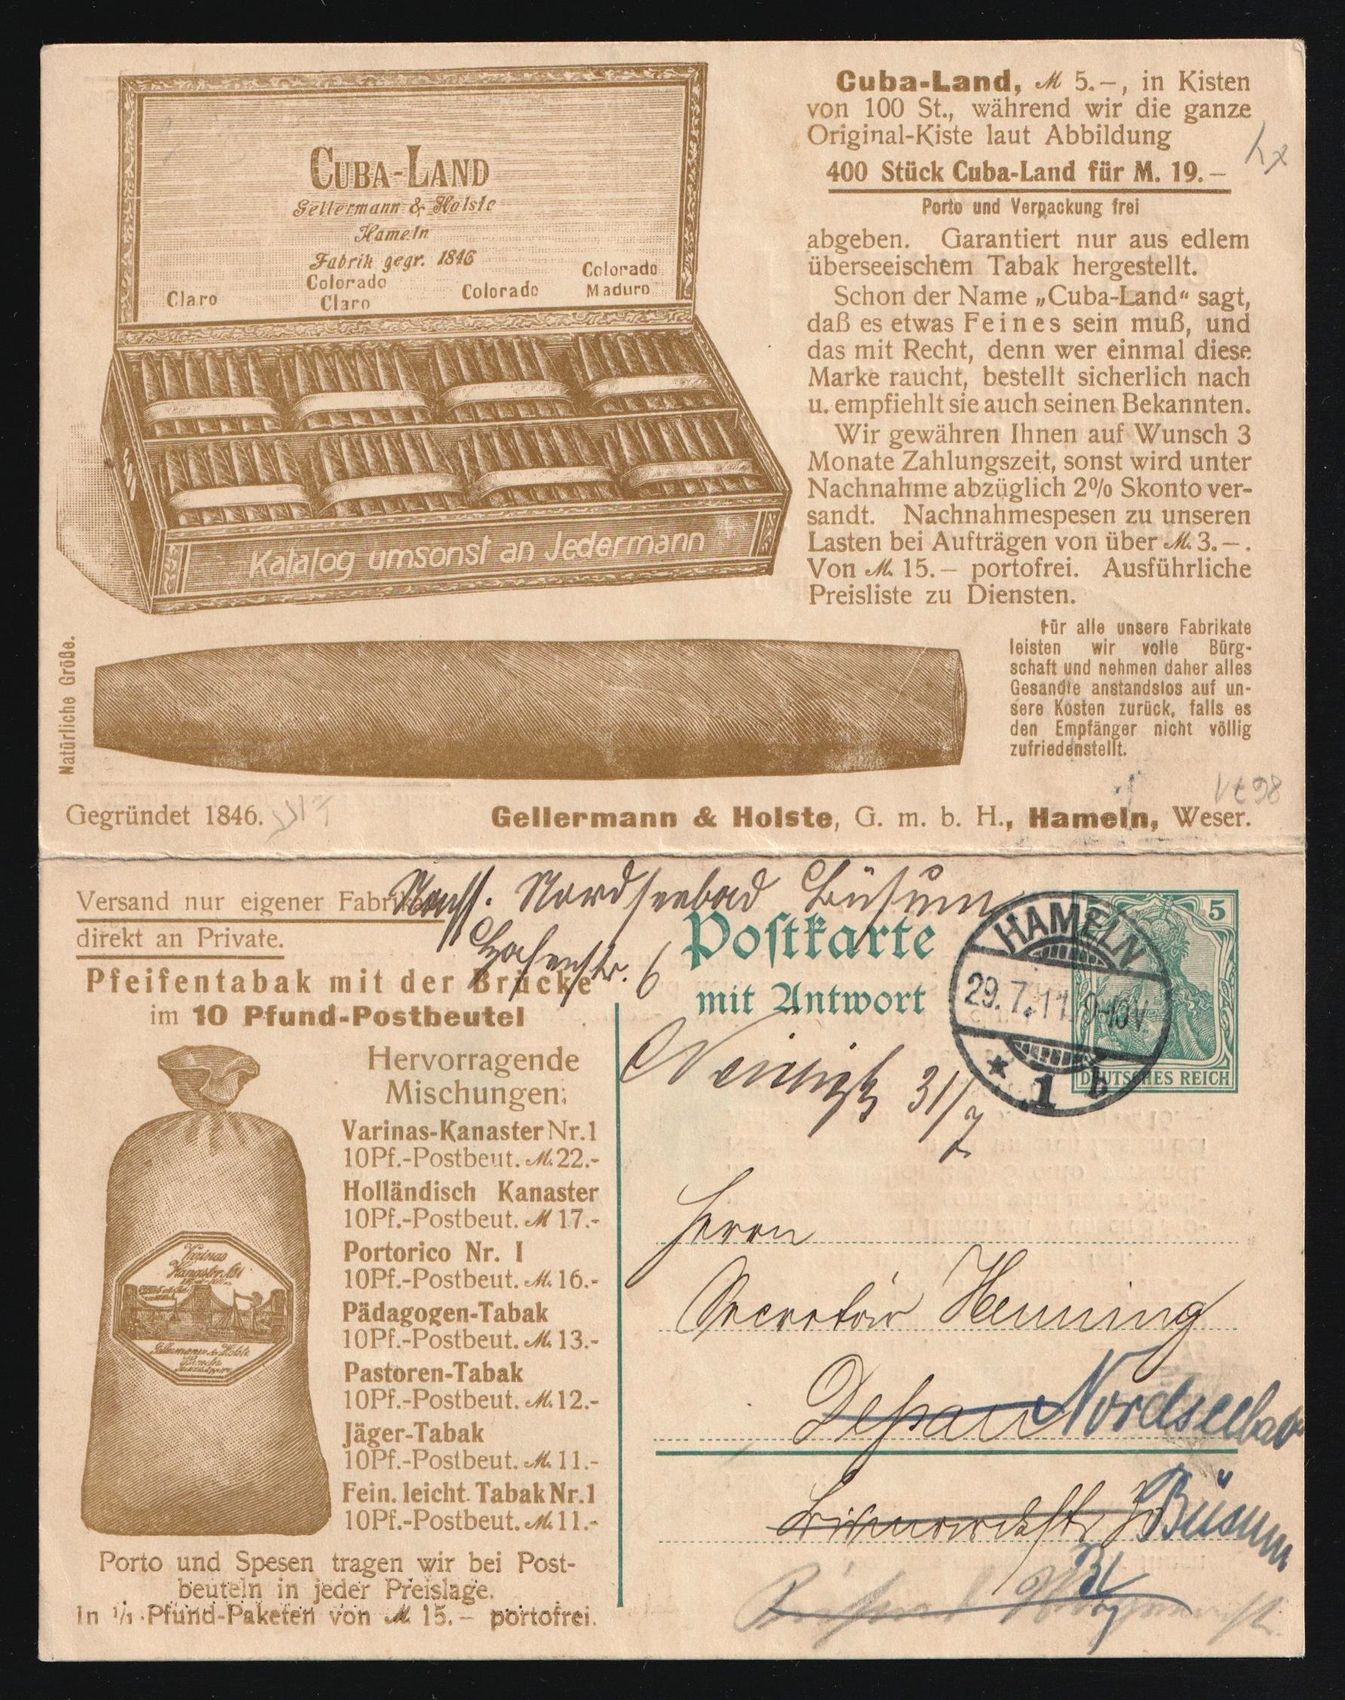 CUBA-LAND
Gellermann & Holste
Hameln
Fabrik gegr. 1846
Claro
Colorado
Claro
Colorado
Colorado
Maduro
Katalog umsonst an Jedermann
Natürliche Größe.
Cuba-Land, M 5.-, in Kisten
von 100 St., während wir die ganze
Original-Kiste laut Abbildung
400 Stück Cuba-Land für M. 19.-
Porto und Verpackung frei
abgeben. Garantiert nur aus edlem
überseeischem Tabak hergestellt.
Schon der Name „Cuba-Land“ sagt,
daß es etwas Feines sein muß, und
das mit Recht, denn wer einmal diese
Marke raucht, bestellt sicherlich nach
u. empfiehlt sie auch seinen Bekannten.
Wir gewähren Ihnen auf Wunsch 3
Monate Zahlungszeit, sonst wird unter
Nachnahme abzüglich 2% Skonto ver-
sandt. Nachnahmespesen zu unseren
Lasten bei Aufträgen von über M. 3.-.
Von M. 15.- portofrei. Ausführliche
Preisliste zu Diensten.
Für alle unsere Fabrikate
leisten wir volle Bürg-
schaft und nehmen daher alles
Gesandte anstandslos auf un-
sere Kosten zurück, falls es
den Empfänger nicht völlig
zufriedenstellt.
Gegründet 1846.
Gellermann & Holste, G. m. b. H., Hameln, Weser.
Versand nur eigener
direkt an Private.
Pfeifentabak mit der Brücke
im 10 Pfund-Postbeutel
Hervorragende
Mischungen:
Varinas-Kanaster Nr. 1
10Pf.-Postbeut. M. 22.-
Holländisch Kanaster
10Pf.-Postbeut. M 17.-
Portorico Nr. I
10Pf.-Postbeut. M. 16.-
Pädagogen-Tabak
10Pf.-Postbeut. M. 13.-
Pastoren-Tabak
10Pf.-Postbeut. M. 12.-
Jäger-Tabak
10Pf.-Postbeut. M. 11.-
Fein. leicht. Tabak Nr. 1
10Pf.-Postbeut. M. 11.-
Varinas
Gellermann & Holste
Porto und Spesen tragen wir bei Post-
beuteln in jeder Preislage.
In 1/1 Pfund-Paketen von M 15.- portofrei.
Nordseebad Büsum
Hafenstr. 6
Postkarte
mit Antwort
HAMELN
29.7.11. 9-10V.
* 1 b
5
DEUTSCHES REICH
31/7
Herrn
Secretär Henning
Dessau Nordseebad
Bismarckstr. Büsum